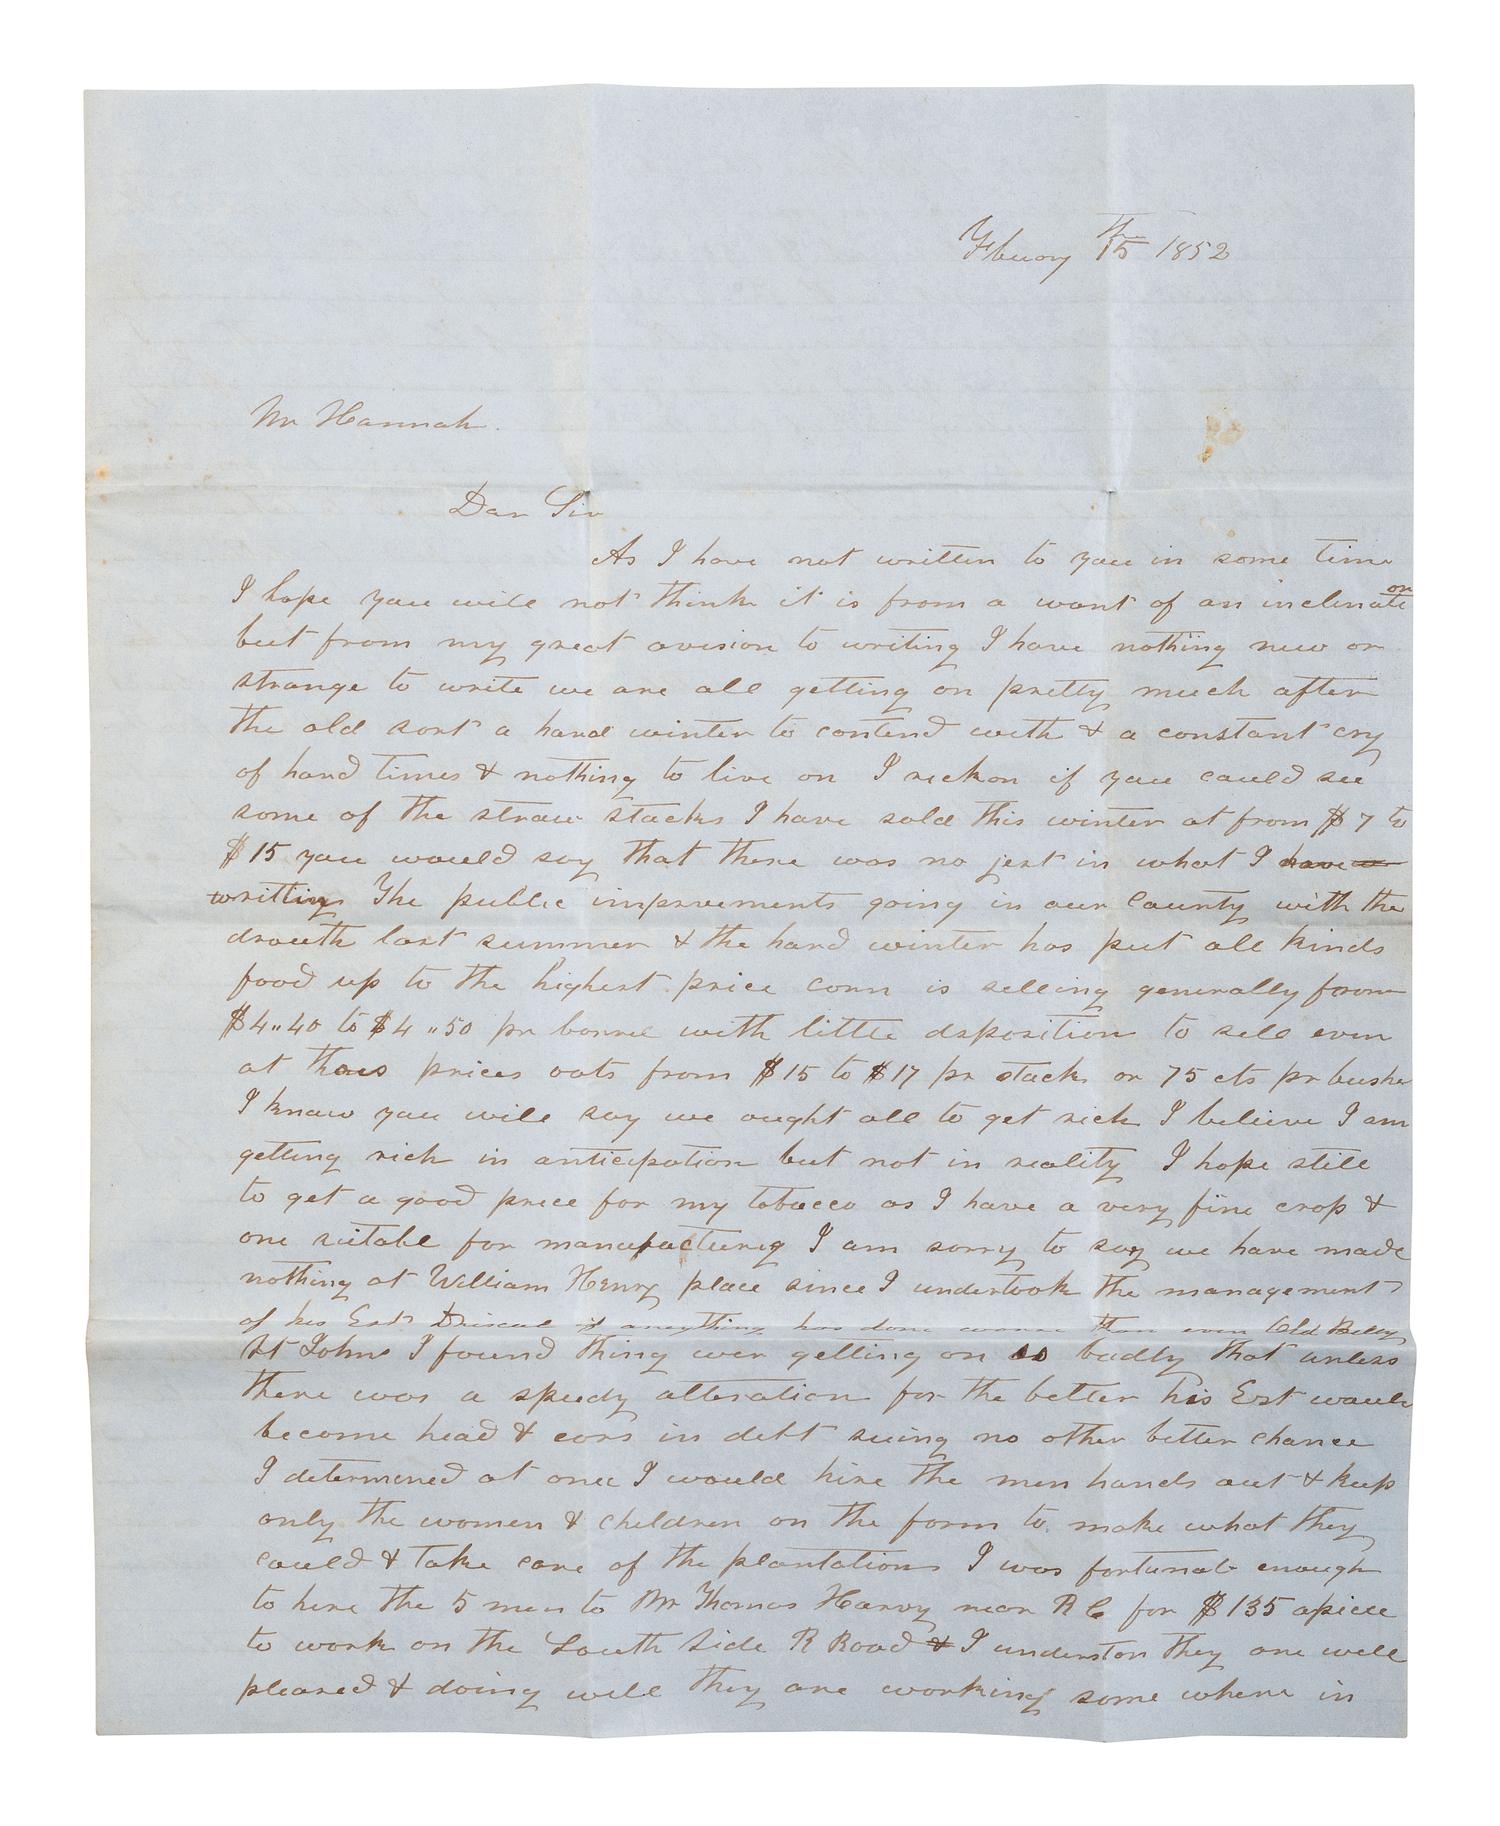 Febuary 15th 1852
Mr Hannah.
Dar Sir
As I have not written to you in some time
I hope you will not think it is from a want of an inclination
but from my great avesion to writing I have nothing new or
strange to write we are all getting on pretty much after
the old sort a hard winter to contend with & a constant cry
of hard times & nothing to live on I reckon if you could see
some of the straw stacks I have sold this winter at from $7 to
$15 you would say that there was no jest in what I have
writting The public imprvements going in our County with the
drouth last summer & the hard winter has put all kinds
food up to the highest price corn is selling generally from
$4"40 to $4"50 pr barrel with little dsposition to sell even
at thes prices oats from $15 to $17 pr stack or 75 cts pr bushe
I know you will say we ought all to get rich I believe I am
getting rich in anticipation but not in reality I hope still
to get a good price for my tobacco as I have a very fine crop &
one suitable for manufacturing I am sorry to say we have made
nothing at William Henry place since I undertook the management
of his Est Driscal if anything has done worse than even Old Billy
St John I found thing wer getting on so badly that unless
there was a speedy alteration for the better his Est would
become head & ears in debt seeing no other better chance
I determined at once I would hire the men hands out & keep
only the women & children on the farm to make what they
could & take care of the plantations I was fortunate enough
to hire the 5 men to Mr Thomas Harvy near R C for $135 apiece
to work on the South Side R Road & I understan they are well
pleased & doing well they are working some where in